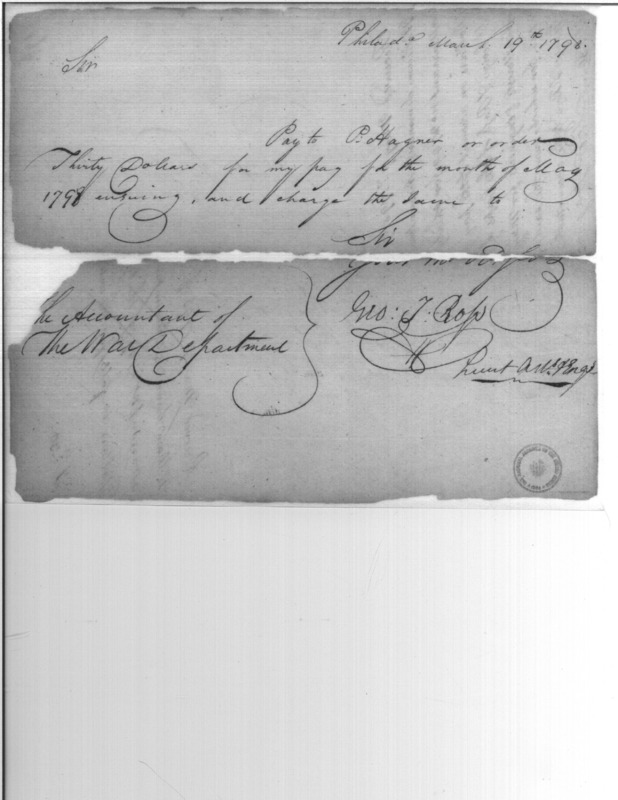 Philad.ª March 19th 1798.
Sir
Pay to P. Hagner or order
Thirty Dollars for my pay for the month of May
1798 ensuing, and charge the same, to
Sir
Geo: T. Ross
The Accountant of
The War Department
Lieut